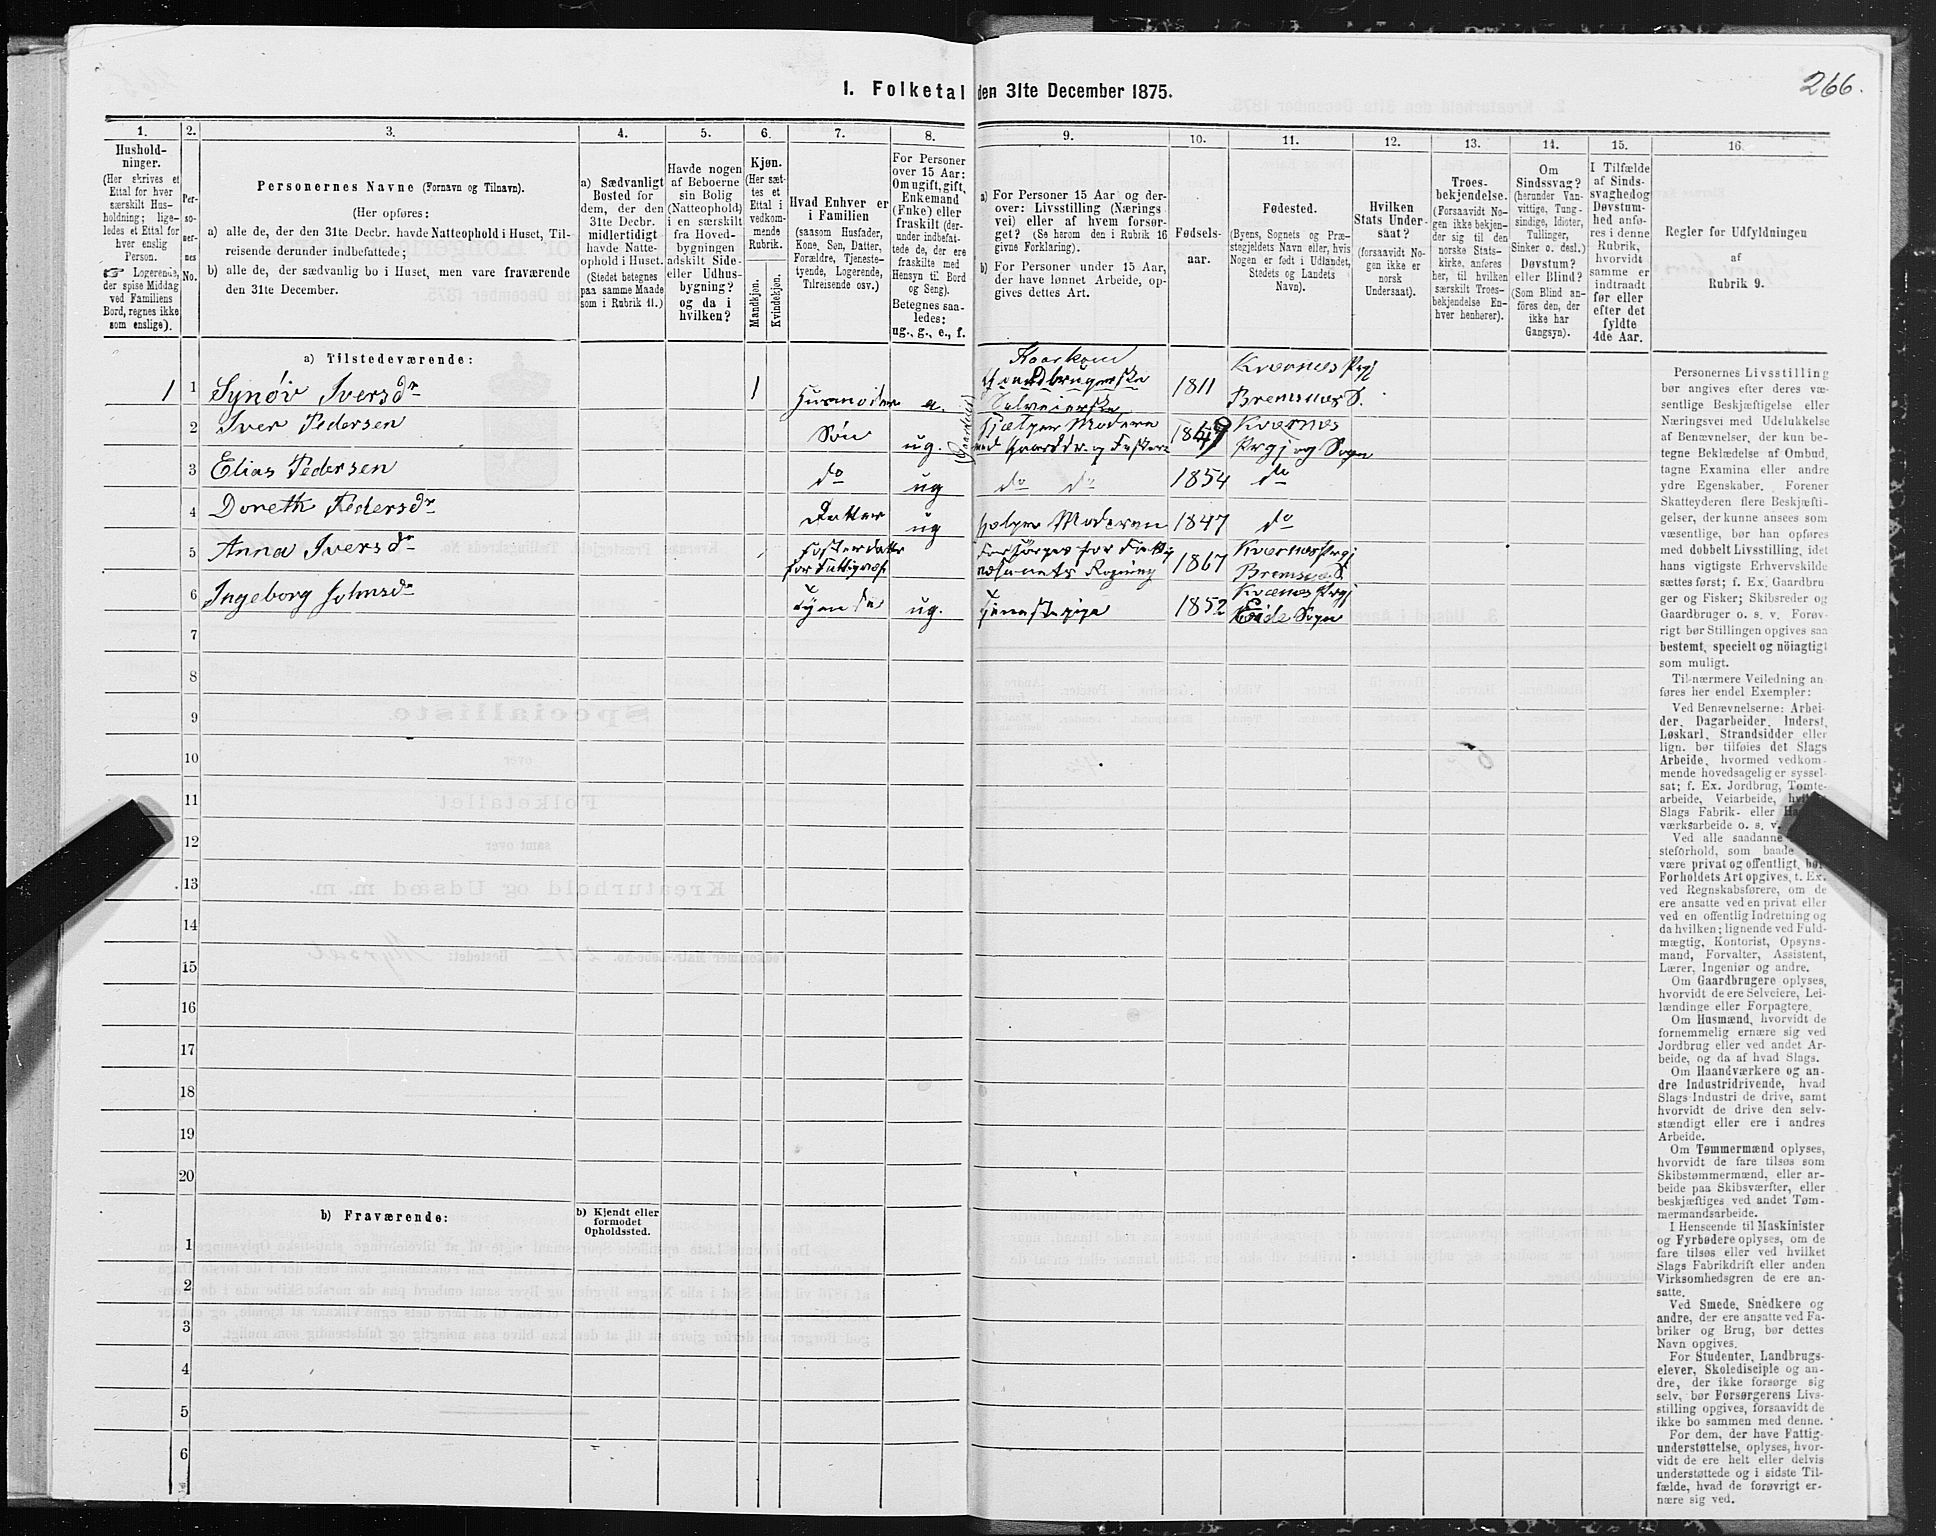 266.
I. Folketal den 31te December 1875.
1.
2.
3.
4.
5.
6.
7.
8.
9.
10.
11.
12.
13.
14.
15.
16.
Hushold-
ninger.
(Her skrives et
Ettal for hver
særskilt Hus-
holdning; lige-
ledes et Ettal for
hver enslig
Person.
☞ Logerende,
der spise Middag
ved Familiens
Bord, regnes ikke
som enslige).
Per-
so-
ner-
nes
No.
Personernes Navne (Fornavn og Tilnavn).
(Her opføres:
a) alle de, der den 31te Decbr. havde Natteophold i Huset, Til-
reisende derunder indbefattede;
b) alle de, der sædvanlig bo i Huset, men vare fraværende
den 31te December.
a) Sædvanligt
Bosted for
dem, der den
31te Decbr.
midlertidigt
havde Natte-
ophold i Huset.
(Stedet betegnes
paa samme Maade
som i Rubrik 11.)
Havde nogen
af Beboerne
sin Bolig
(Natteophold)
i en særskilt
fra Hoved-
bygningen
adskilt Side-
eller Udhus-
bygning?
og da i
hvilken?
Kjøn.
(Her sæt-
tes et
Ettal i
vedkom-
mende
Rubrik.
Mandkjøn.
Kvindekjøn.
Hvad Enhver er
i Familien
(saasom Husfader,
Kone, Søn, Datter,
Forældre, Tjeneste-
tyende, Logerende,
Tilreisende osv.)
For Personer
over 15 Aar:
Om ugift, gift,
Enkemand
(Enke) eller
fraskilt (der-
under indbefat-
tede de, der ere
fraskilte med
Hensyn til Bord
og Seng).
Betegnes saa-
ledes:
ug., g., e., f.
a) For Personer 15 Aar og der-
over: Livsstilling (Nærings
vei) eller af hvem forsør-
get? (Se herom den i Rubrik 16
givne Forklaring).
b) For Personer under 15 Aar,
der have lønnet Arbeide, op-
gives dettes Art.
Fødsels-
aar.
Fødested.
(Byens, Sognets og Præ-
stegjeldets Navn eller, hvis
Nogen er født i Udlandet,
Stedets og Landets
Navn).
Hvilken
Stats Under-
saat?
(forsaavidt No-
gen ikke er
norsk
Undersaat).
Troes-
bekjendelse.
(Forsaavidt No-
gen ikke bekjen-
der sig til den
norske Stats-
kirke, anføres
her, til hvilken
særskilt Troes-
bekjendelse En-
hver henhører).
Om
Sindssvag?
(herunder Van-
vittige, Tung-
sindige, Idioter,
Tullinger,
Sinker o. desl.)
Døvstum?
eller Blind?
(Som Blind an-
føres den, der
ikke har
Gangsyn).
I Tilfælde
af Sinds-
svaghed og
Døvstum-
hed anfø-
res i denne
Rubrik,
hvorvidt
samme er
indtraadt
før eller
efter det
fyldte
4de Aar.
Regler for Udfyldningen
af
Rubrik 9.
a) Tilstedeværende:
1 1 Synøv Iversdr 1 Husmoder e. Kaarkone Gaardbrugerske Selveierske 1811 Kvernes Prgj Bremsnes S.
2 Iver Pedersen Søn ug. Hjælper Moderen med Gaardbr. og Fiskeri 1849 Kvernes Prgj og Sogn
3 Elias Pedersen do ug do do 1854 do
4 Doreth Pedersdr Datter ug hjælper Moderen 1847 do
5 Anna Iversdr Fosterdatter for Fattigvæs. Forsørges for Fattigvæsenets Regning 1867 Kvernes Prgj Bremsnes S.
6 Ingeborg Johnsdr Tyende ug. Tjenestepige 1852 Kvernes Prgj Eide Sogn
7
8
9
10
11
12
13
14
15
16
17
18
19
20
b) Fraværende:
b) Kjendt eller
formodet
Opholdssted.
1
2
3
4
5
6
Personernes Livsstilling
bør angives efter deres væ-
sentlige Beskjæftigelse eller
Næringsvei med Udelukkelse
af Benævnelser, der kun be-
tegne Beklædelse af Ombud,
tagne Examina eller andre
ydre Egenskaber. Forener
Skatteyderen flere Beskjæfti-
gelser, der kunne ansees som
væsentlige, bør han opføres
med dobbelt Livsstilling, idet
hans vigtigste Erhvervskilde
sættes først; f. Ex. Gaardbru-
ger og Fisker; Skibsreder og
Gaardbruger o. s. v. Forøv-
rigt bør Stillingen opgives saa
bestemt, specielt og nöiagtigt
som muligt.
Til nærmere Veiledning an-
føres her endel Exempler:
Ved Benævnelserne: Arbei-
der, Dagarbeider, Inderst,
Løskarl, Strandsidder eller
lign. bør tilføies det Slags
Arbeide, hvormed vedkom-
mende hovedsagelig er syssel-
sat; f. Ex. Jordbrug, Tomte-
arbeide, Veiarbeide,
Slags Fabrik- eller
værksarbeide o. s. v.
Ved alle saadanne
steforhold, som baade
være privat og offentligt, bør
Forholdets Art opgives, t. Ex.
ved Regnskabsførere, om de
ere ansatte ved en privat eller
ved en offentlig Indretning og
da hvilken; lignende ved Fuld-
mægtig, Kontorist, Opsyns-
mand, Forvalter, Assistent,
Lærer, Ingeniør og andre.
Om Gaardbrugere oplyses,
hvorvidt de ere Selveiere, Lei-
lændinge eller Forpagtere.
Om Husmænd, hvorvidt de
fornemmelig ernære sig ved
Jordbrug eller ved andet Ar-
beide, og da af hvad Slags.
Om Haandværkere og an-
dre Industridrivende, hvad
Slags Industri de drive, samt
hvorvidt de drive den selv-
stændigt eller ere i andres
Arbeide.
Om Tømmermænd oplyses,
hvorvidt de fare tilsøs som
Skibstømmermænd, eller ar-
beide paa Skibsværfter, eller
beskjæftiges ved andet Tøm-
mermandsarbeide.
I Henseende til Maskinister
og Fyrbødere oplyses, om de
fare tilsøs eller ved hvilket
Slags Fabrikdrift eller anden
Virksomhedsgren de ere an-
satte.
Ved Smede, Snedkere og
andre, der ere ansatte ved Fa-
briker og Brug, bør dettes
Navn opgives.
For Studenter, Landbrugs-
elever, Skoledisciple og an-
dre, der ikke forsørge sig
selv, bør Forsørgerens Livs-
stilling opgives, forsaavidt de
ikke bo sammen med denne.
For dem, der have Fattig-
understøttelse, oplyses, hvor-
vidt de ere helt eller delvis
understøttede og i sidste Til-
fælde, hvad de forøvrigt er-
nære sig ved.